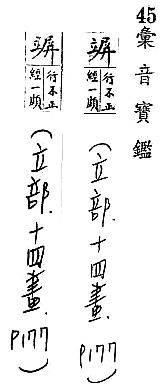 45彙音寶鑑
行不正
經一頗
(立部.十四畫.P177)
行不正
經一頗
(立部.十四畫.P177)